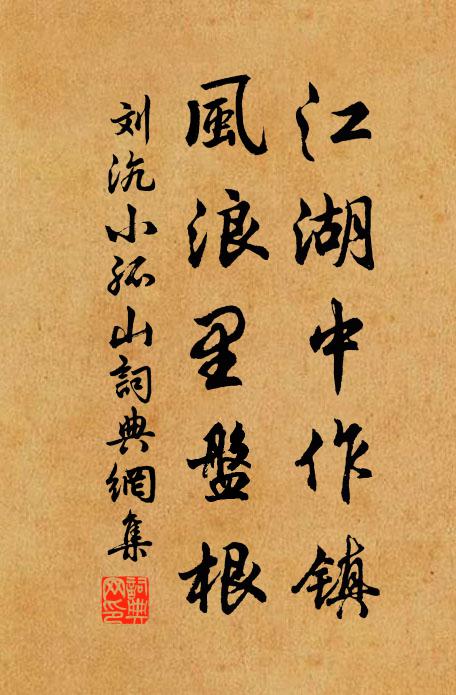 江湖中作镇
風浪里盤根
刘沆小孤山詞典網集
詞典网印